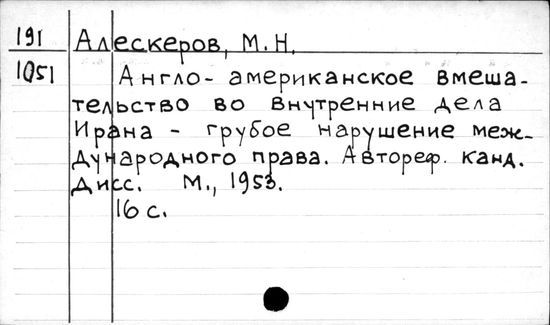 191 Алескеров, М.Н.
1051 Англо-американское вмеша-
тельство во внутренние дела
Ирана - грубое нарушение меж-
дународного права. Автореф. канд.
дисс. М., 1953.
16 с.